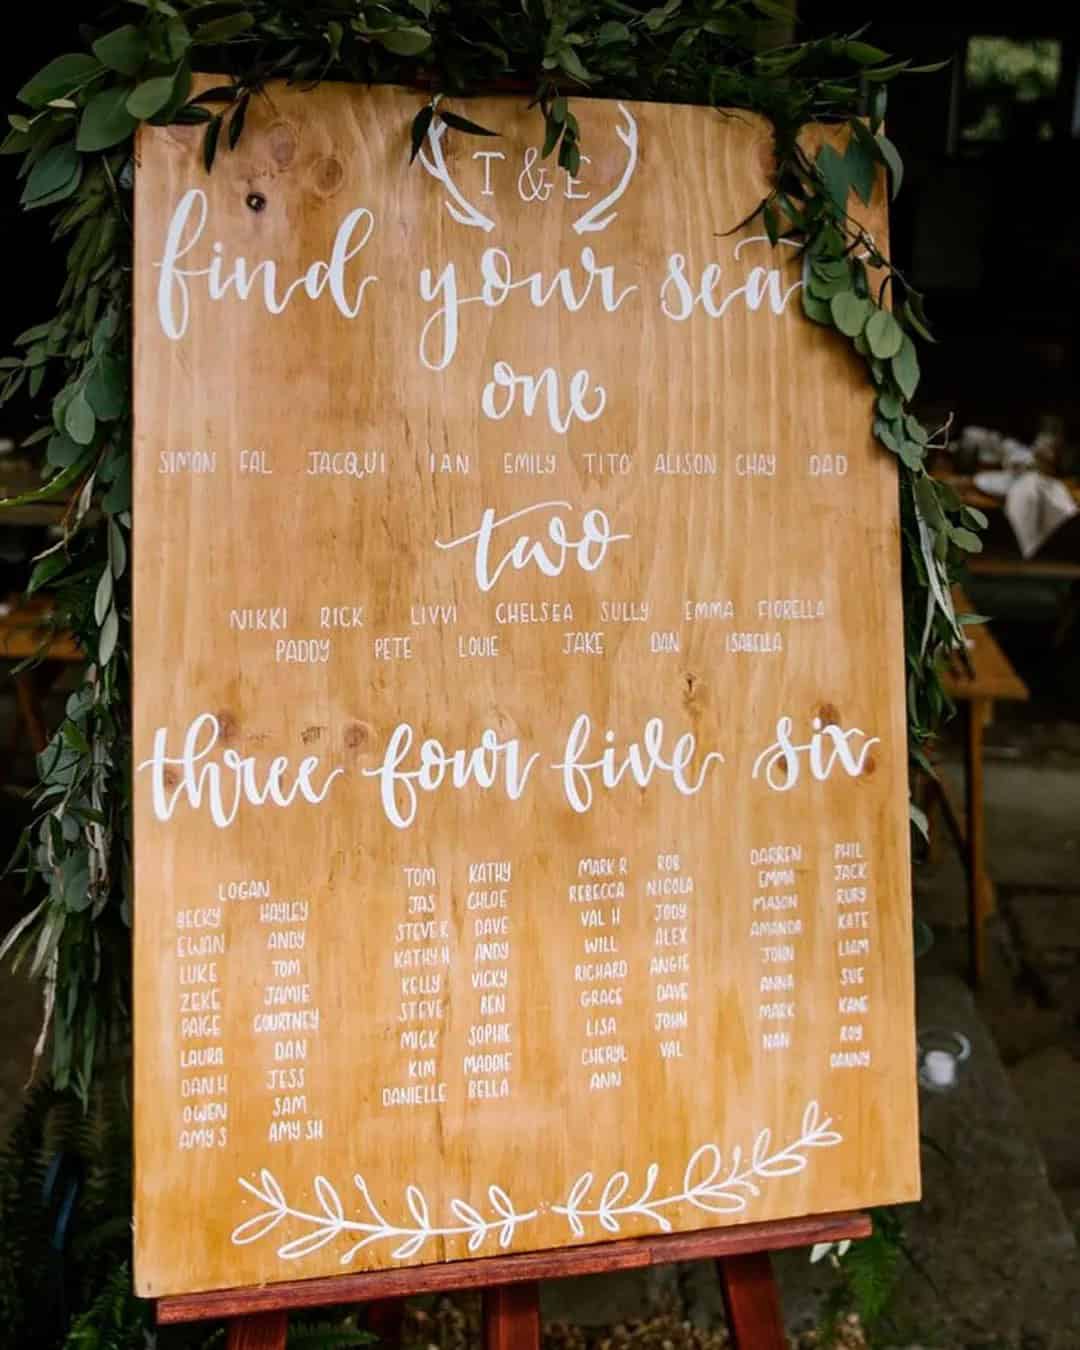 T & E
find your sea
one
SIMON FAL JACQUI IAN EMILY TITO ALISON CHAY DAD
two
NIKKI RICK LIVVI CHELSEA SULLY EMMA FIORELLA
PADDY PETE LOUIE JAKE DAN ISABELLA
three four five six
LOGAN
BECKY HAYLEY
EWAN ANDY
LUKE TOM
ZEKE JAMIE
PAIGE COURTNEY
LAURA DAN
DAN.H JESS
OWEN SAM
AMY S AMY SH
TOM KATHY
JAS CHLOE
STEVE K DAVE
KATHY.H ANDY
KELLY VICKY
STEVE BEN
MICK SOPHIE
KIM MADDIE
DANIELLE BELLA
MARK R ROB
REBECCA NICOLA
VAL H JODY
WILL ALEX
RICHARD ANGIE
GRACE DAVE
LISA JOHN
CHERYL VAL
ANN
DARREN PHIL
EMMA JACK
MASON RUBY
AMANDA KATE
JOHN LIAM
ANNA SUE
MARK KANE
NAN ROY
DANNY